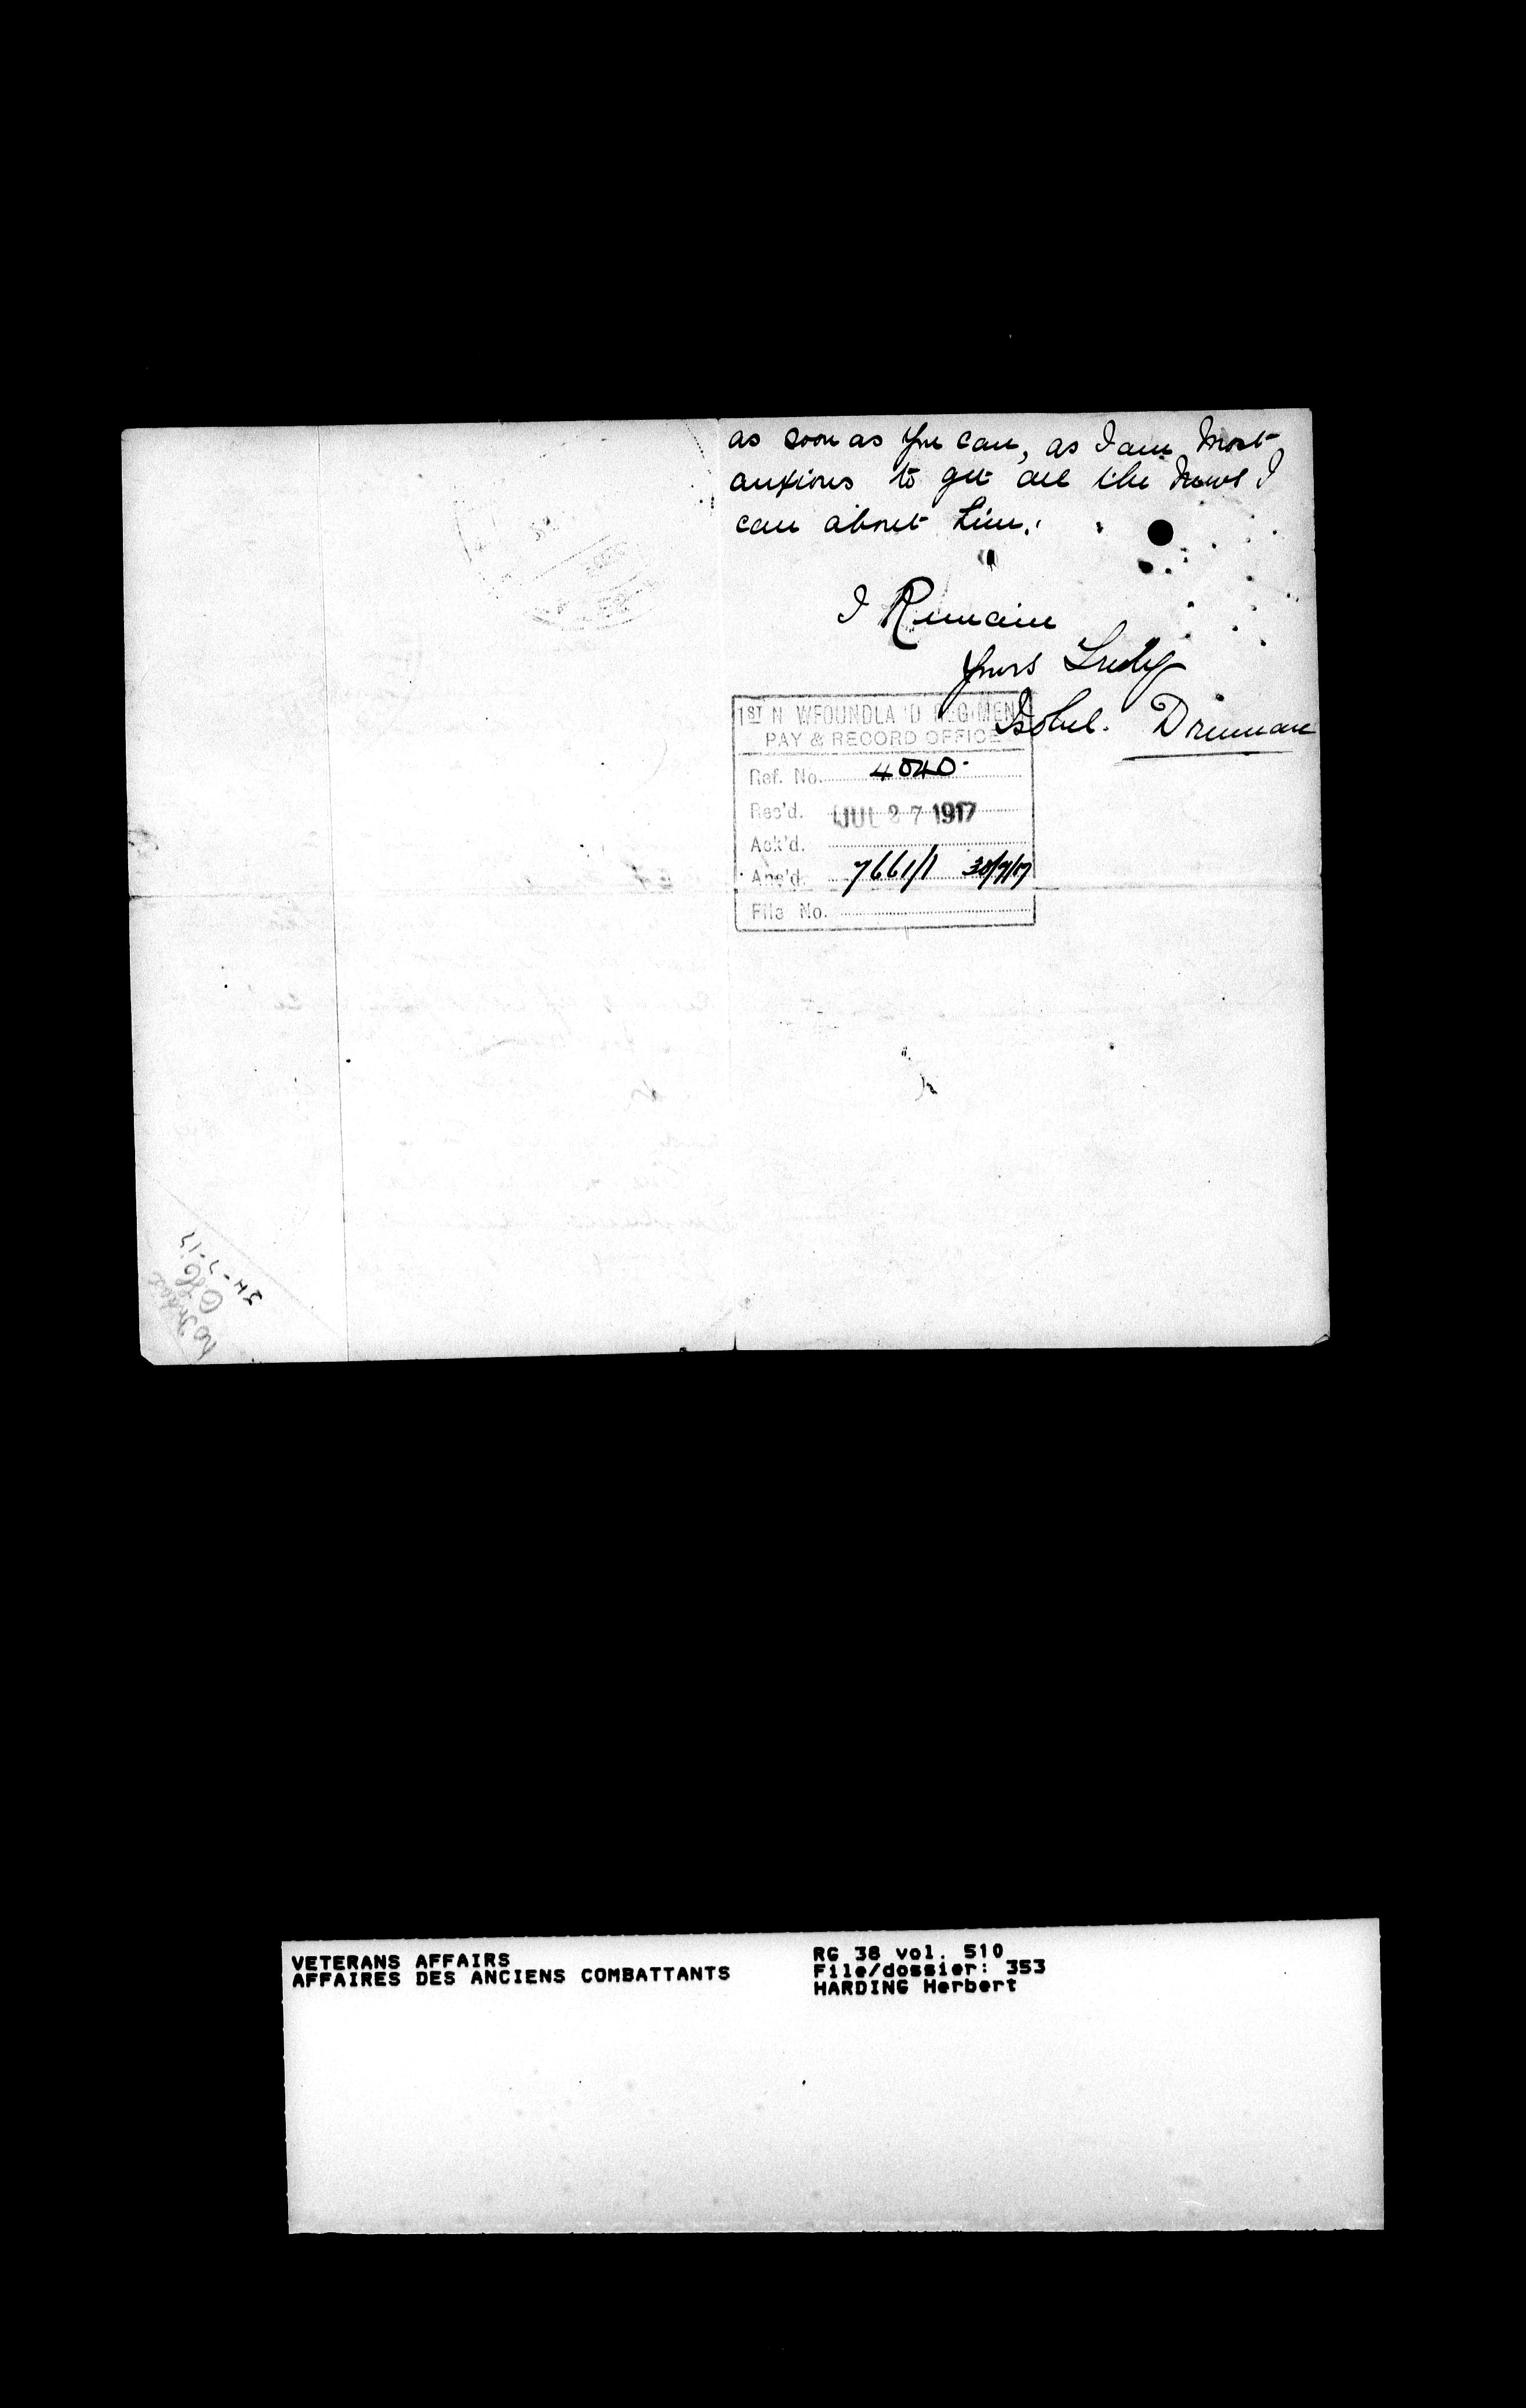 as soon as you can, as I am most
anxious to get all the news I
can about him.
I Remain
Yours Truly
Isobel. Drennan
1ST N WFOUNDLA D REGIMENT
PAY & RECORD OFFICE
Ref. No. 4040.
Rec'd. JUL 27 1917
Ack'd.
Ans'd. 7661/1 30/7/17
File No.
VETERANS AFFAIRS
AFFAIRES DES ANCIENS COMBATTANTS
RG 38 vol. 510
File/dossier: 353
HARDING Herbert